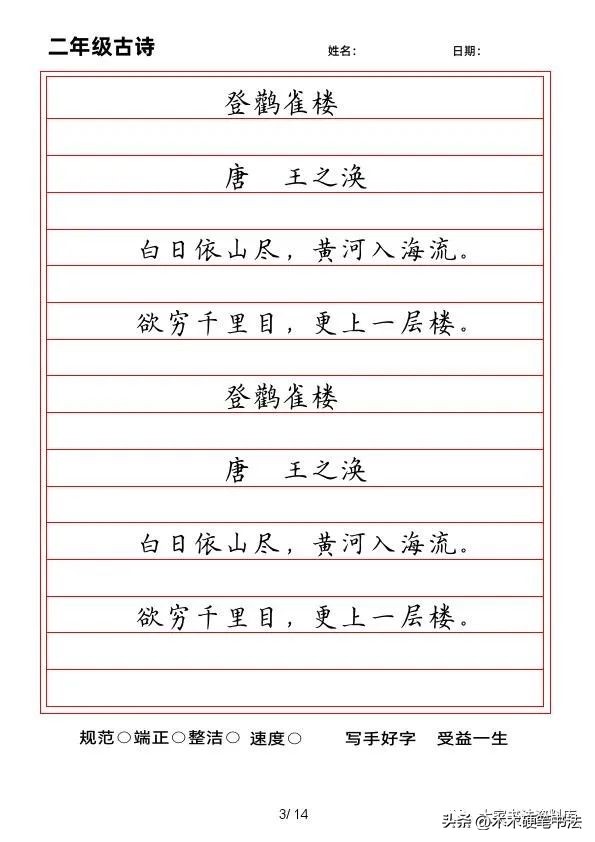 二年级古诗 姓名： 日期：
登鹳雀楼
唐 王之涣
白日依山尽，黄河入海流。
欲穷千里目，更上一层楼。
登鹳雀楼
唐 王之涣
白日依山尽，黄河入海流。
欲穷千里目，更上一层楼。
规范○端正○整洁○ 速度○ 写手好字 受益一生
3/ 14
头条 @木木硬笔书法